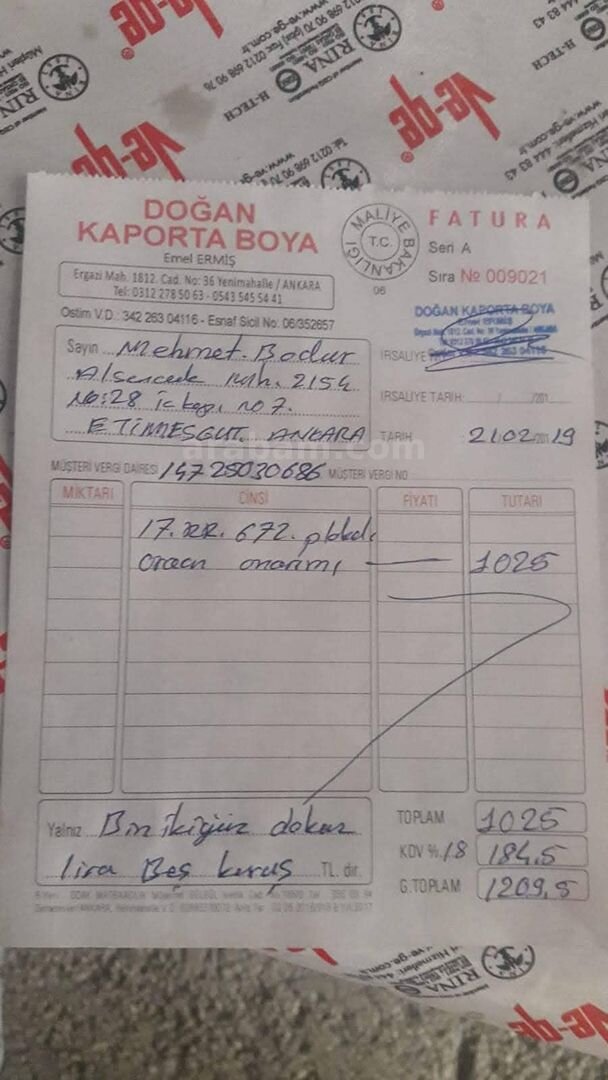 ve-ge
RINA
H-TECH
DOĞAN
KAPORTA BOYA
Emel ERMİŞ
Ergazi Mah. 1812. Cad. No: 36 Yenimahalle / ANKARA
Tel: 0312 278 50 63 - 0543 545 54 41
Ostim V.D.: 342 263 04116 - Esnaf Sicil No: 06/352657
MALİYE BAKANLIĞI
T.C.
06
FATURA
Seri A
Sıra No 009021
DOĞAN KAPORTA BOYA
Sayın Mehmet Bodur
2154
No:28 iç kapı no 7.
ETİMESGUT. ANKARA
İRSALİYE
İRSALİYE TARİH: / /201
TARİH 21/02/2019
arabam.com
MÜŞTERİ VERGİ DAİRESİ 14725030686 MÜŞTERİ VERGİ NO
MİKTARI CİNSİ FİYATI TUTARI
17. 672. plakalı
onarımı 1025
Yalnız Bin ikiyüz dokuz
lira Beş kuruş TL. dir.
TOPLAM 1025
KDV % 18 184,5
G.TOPLAM 1209,5